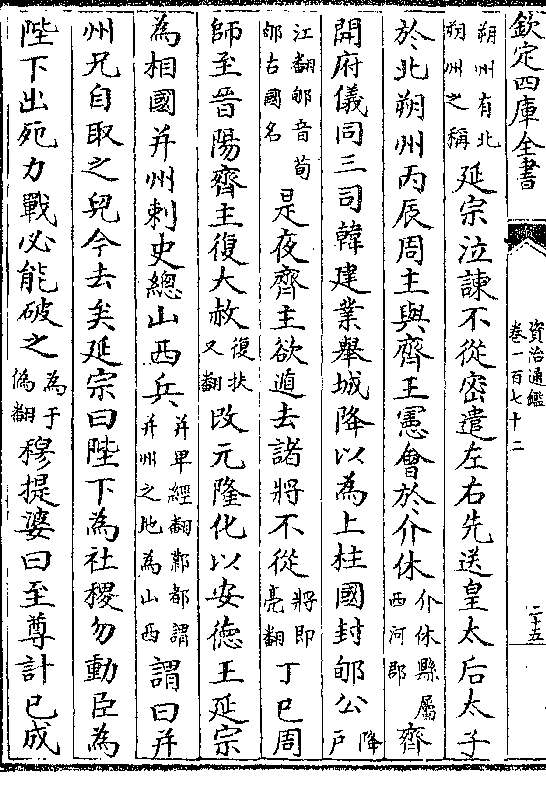 欽定四庫全書
資治通鑑
卷一百七十二
二十五
朔州有北
朔州之稱
延宗泣諫不從密遣左右先送皇太后太子
於北朔州丙辰周主與齊王憲會於介休
介休縣屬
西河郡
齊
開府儀同三司韓建業舉城降以為上柱國封郇公
降戶
江翻郇音荀
郇古國名
是夜齊主欲遁去諸將不從
將即
亮翻
丁巳周
師至晉陽齊主復大赦
復扶
又翻
改元隆化以安德王延宗
為相國并州刺史總山西兵
并卑經翻鄴都謂
并州之地為山西
謂曰并
州兄自取之兒今去矣延宗曰陛下為社稷勿動臣為
陛下出死力戰必能破之
為于
偽翻
穆提婆曰至尊計已成